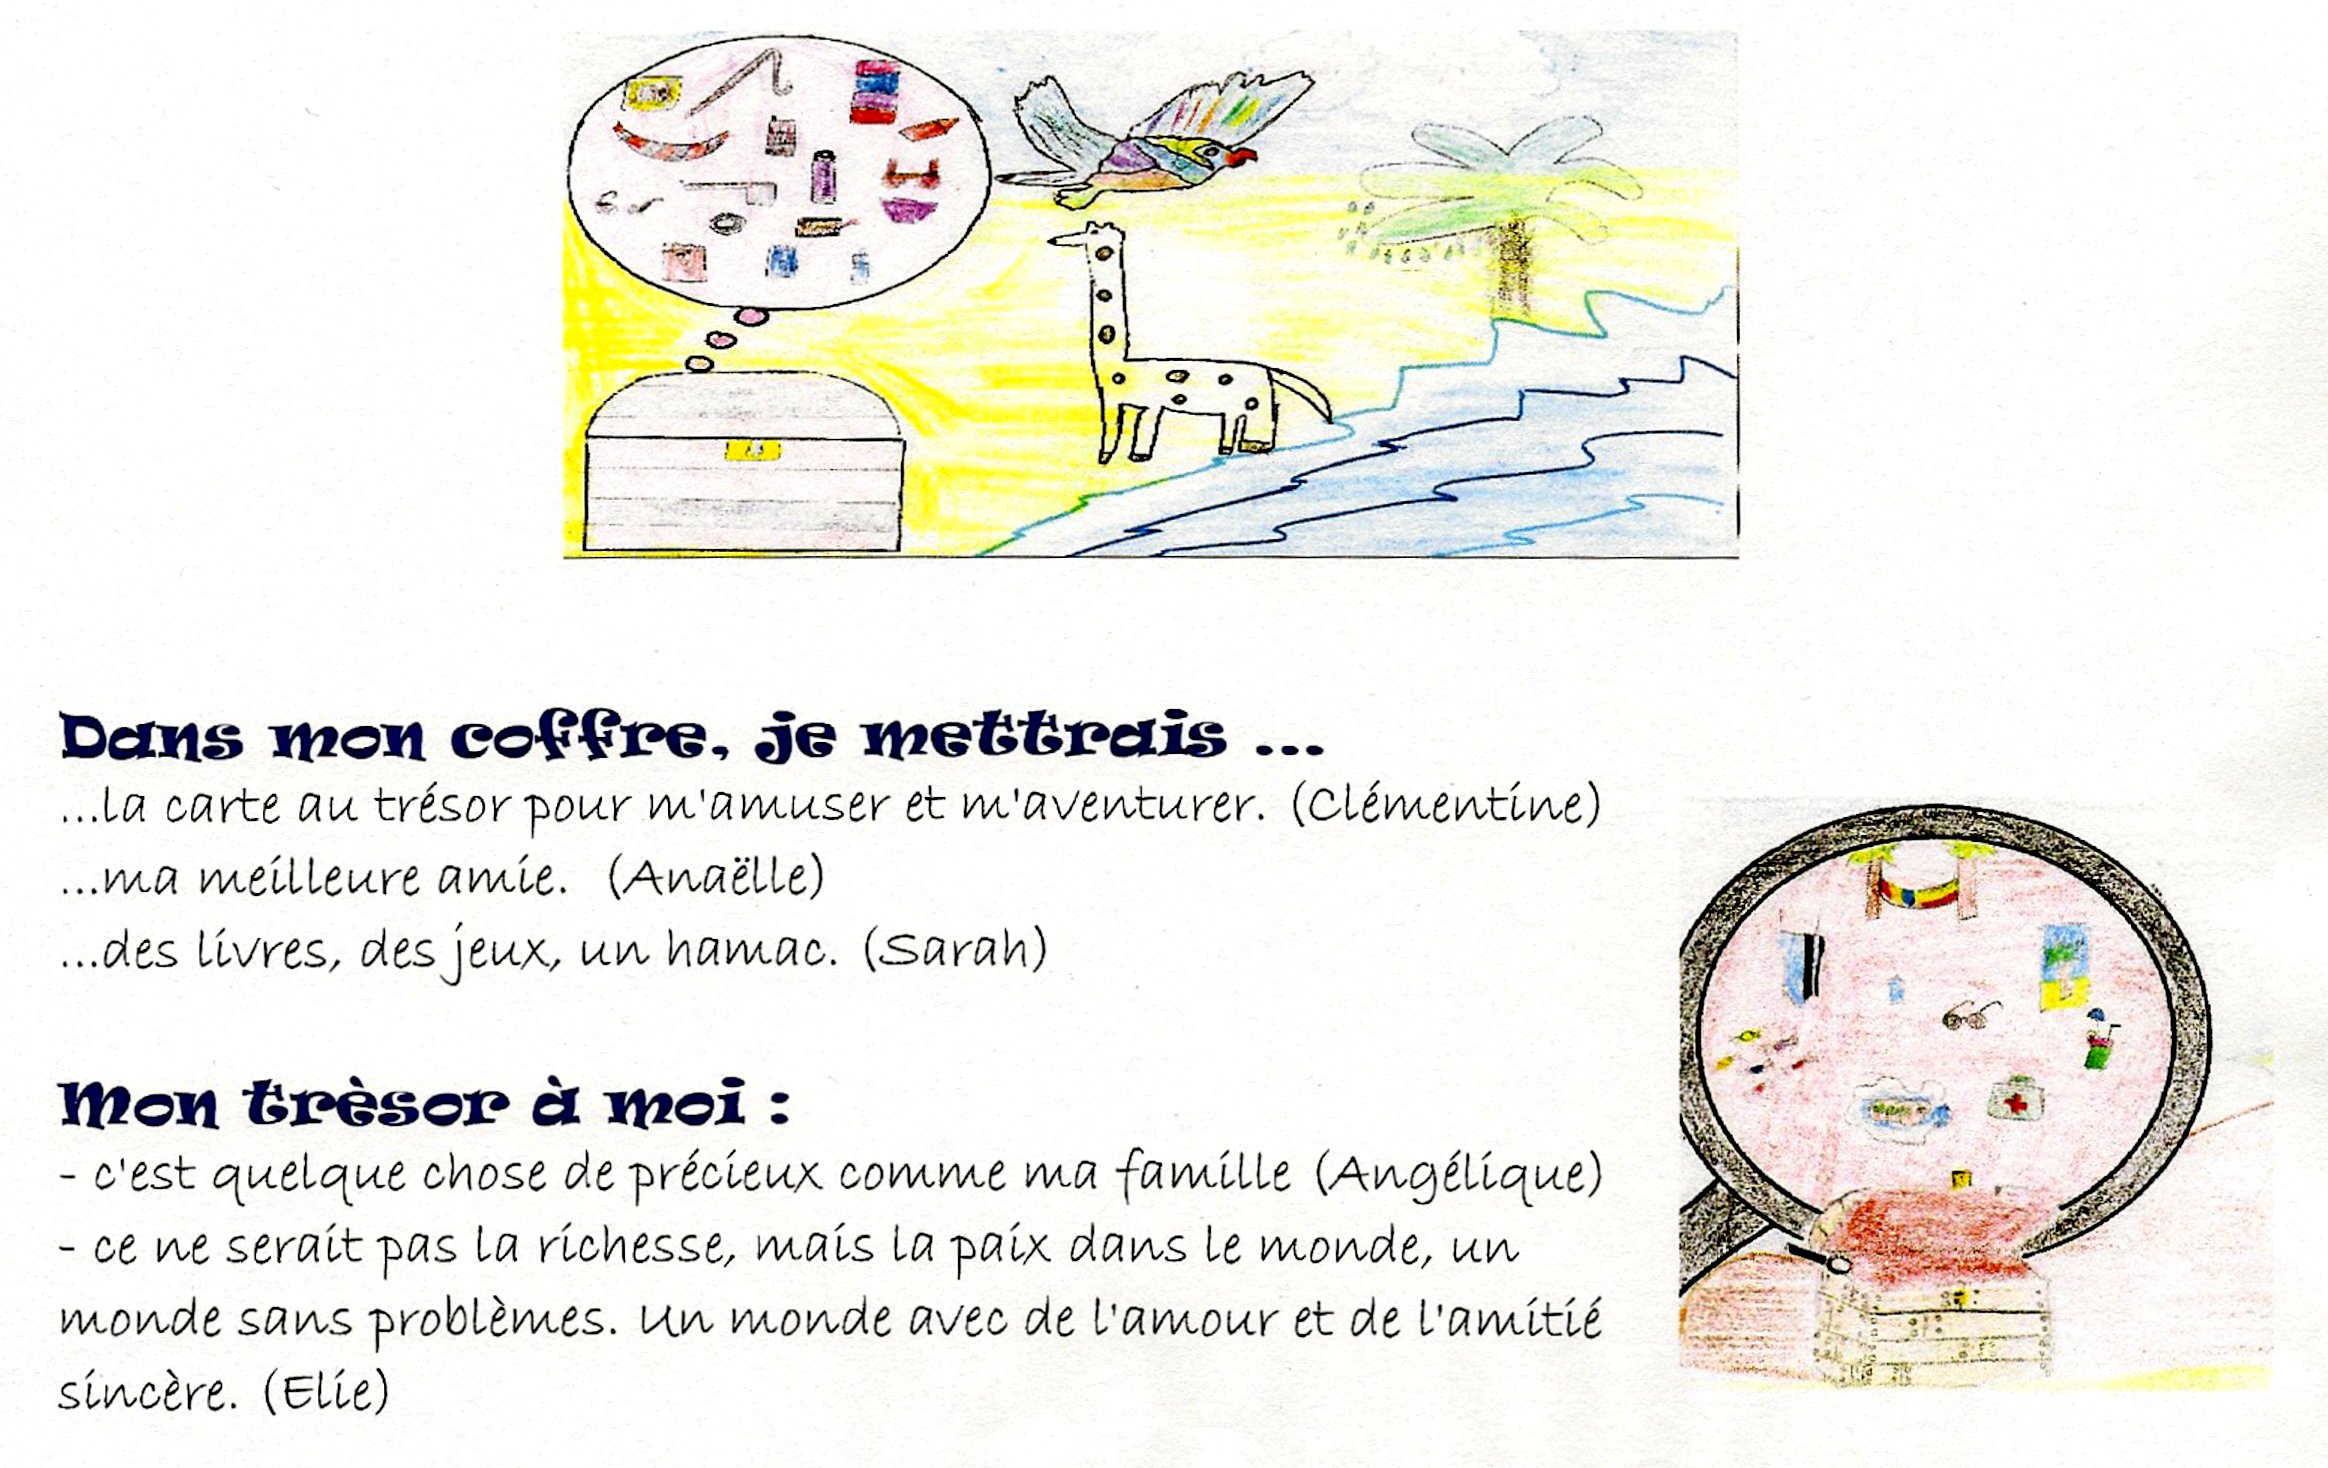 Dans mon coffre, je mettrais ...
...la carte au trésor pour m'amuser et m'aventurer. (Clémentine)
...ma meilleure amie. (Anaëlle)
...des livres, des jeux, un hamac. (Sarah)
Mon trèsor à moi :
- c'est quelque chose de précieux comme ma famille (Angélique)
- ce ne serait pas la richesse, mais la paix dans le monde, un
monde sans problèmes. Un monde avec de l'amour et de l'amitié
sincère. (Elie)